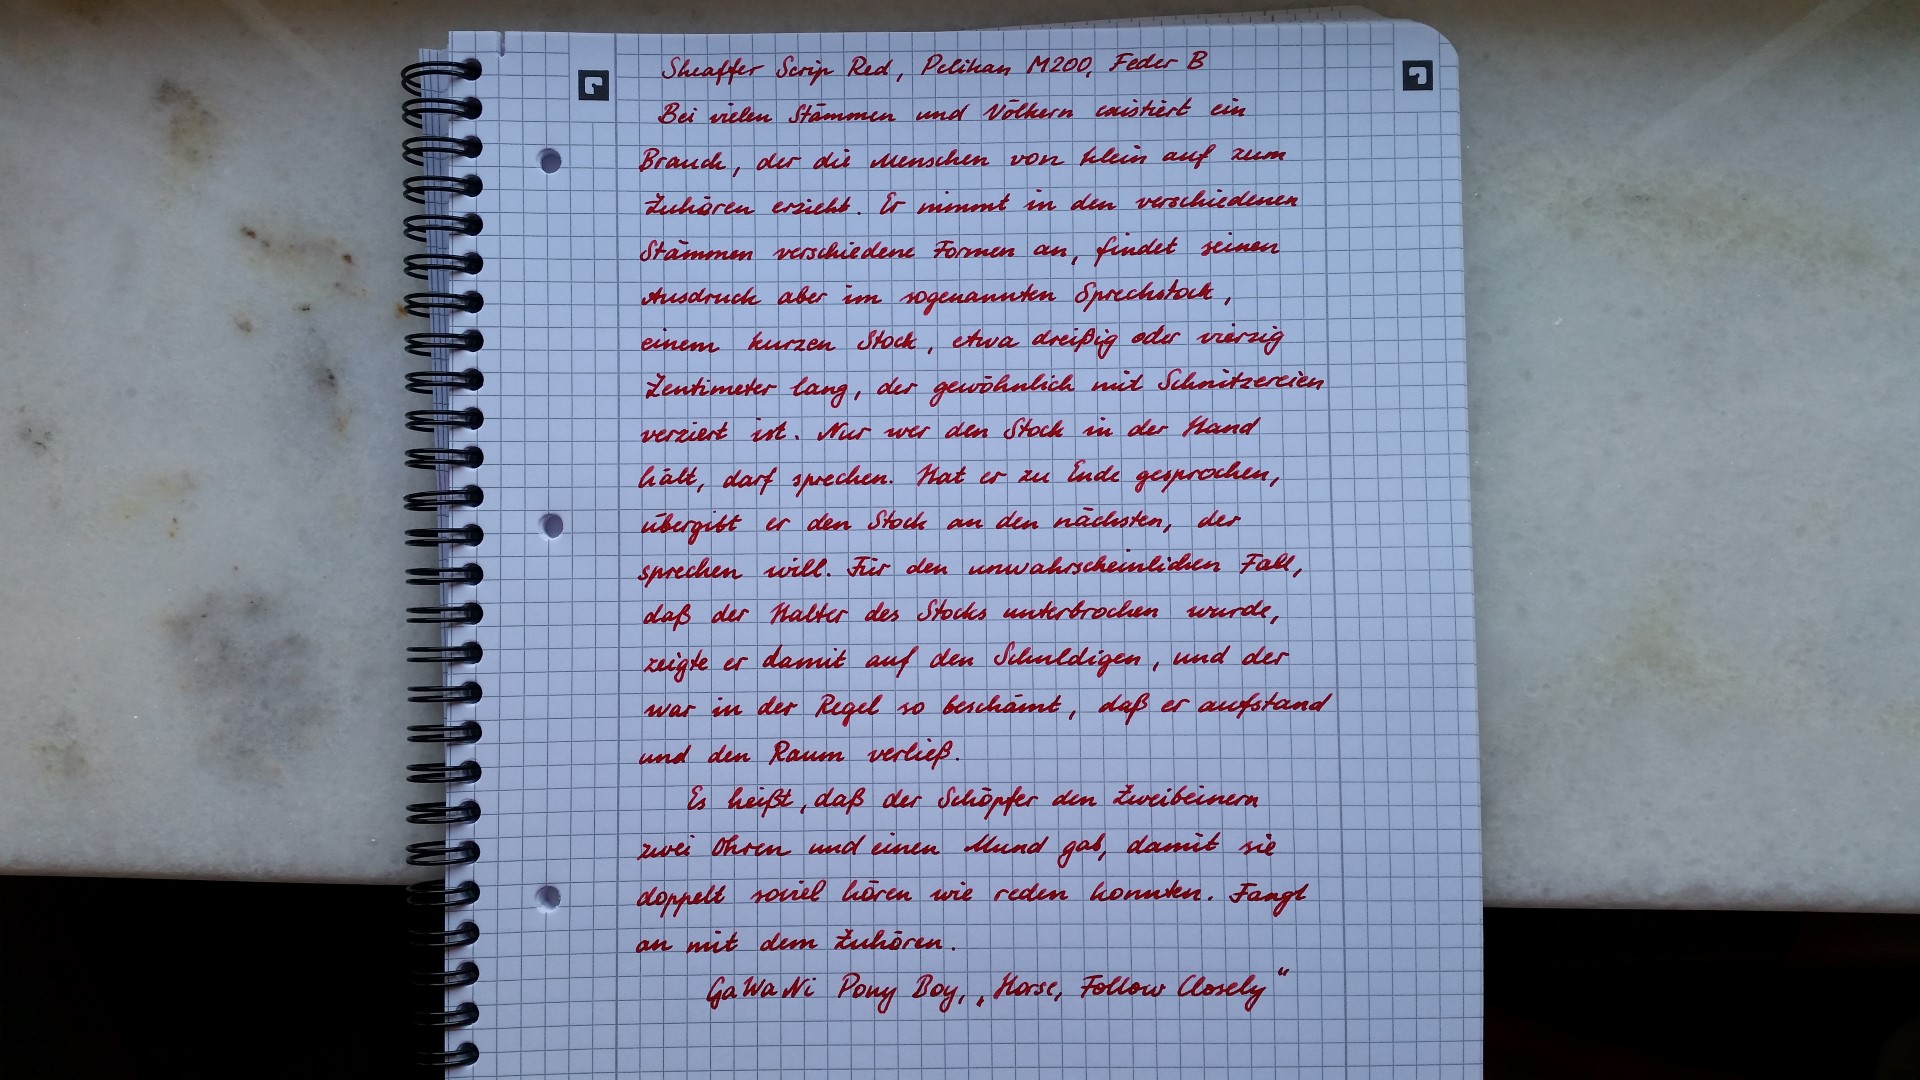 Sheaffer Scrip Red, Pelikan M200, Feder B
Bei vielen Stämmen und Völkern existiert ein
Brauch, der die Menschen von klein auf zum
Zuhören erzieht. Er nimmt in den verschiedenen
Stämmen verschiedene Formen an, findet seinen
Ausdruck aber im sogenannten Sprechstock,
einem kurzen Stock, etwa dreißig oder vierzig
Zentimeter lang, der gewöhnlich mit Schnitzereien
verziert ist. Nur wer den Stock in der Hand
hält, darf sprechen. Hat er zu Ende gesprochen,
übergibt er den Stock an den nächsten, der
sprechen will. Für den unwahrscheinlichen Fall,
daß der Halter des Stocks unterbrochen wurde,
zeigte er damit auf den Schuldigen, und der
war in der Regel so beschämt, daß er aufstand
und den Raum verließ.
Es heißt, daß der Schöpfer den Zweibeinern
zwei Ohren und einen Mund gab, damit sie
doppelt soviel hören wie reden konnten. Fangt
an mit dem Zuhören.
GaWaNi Pony Boy, „Horse, Follow Closely"